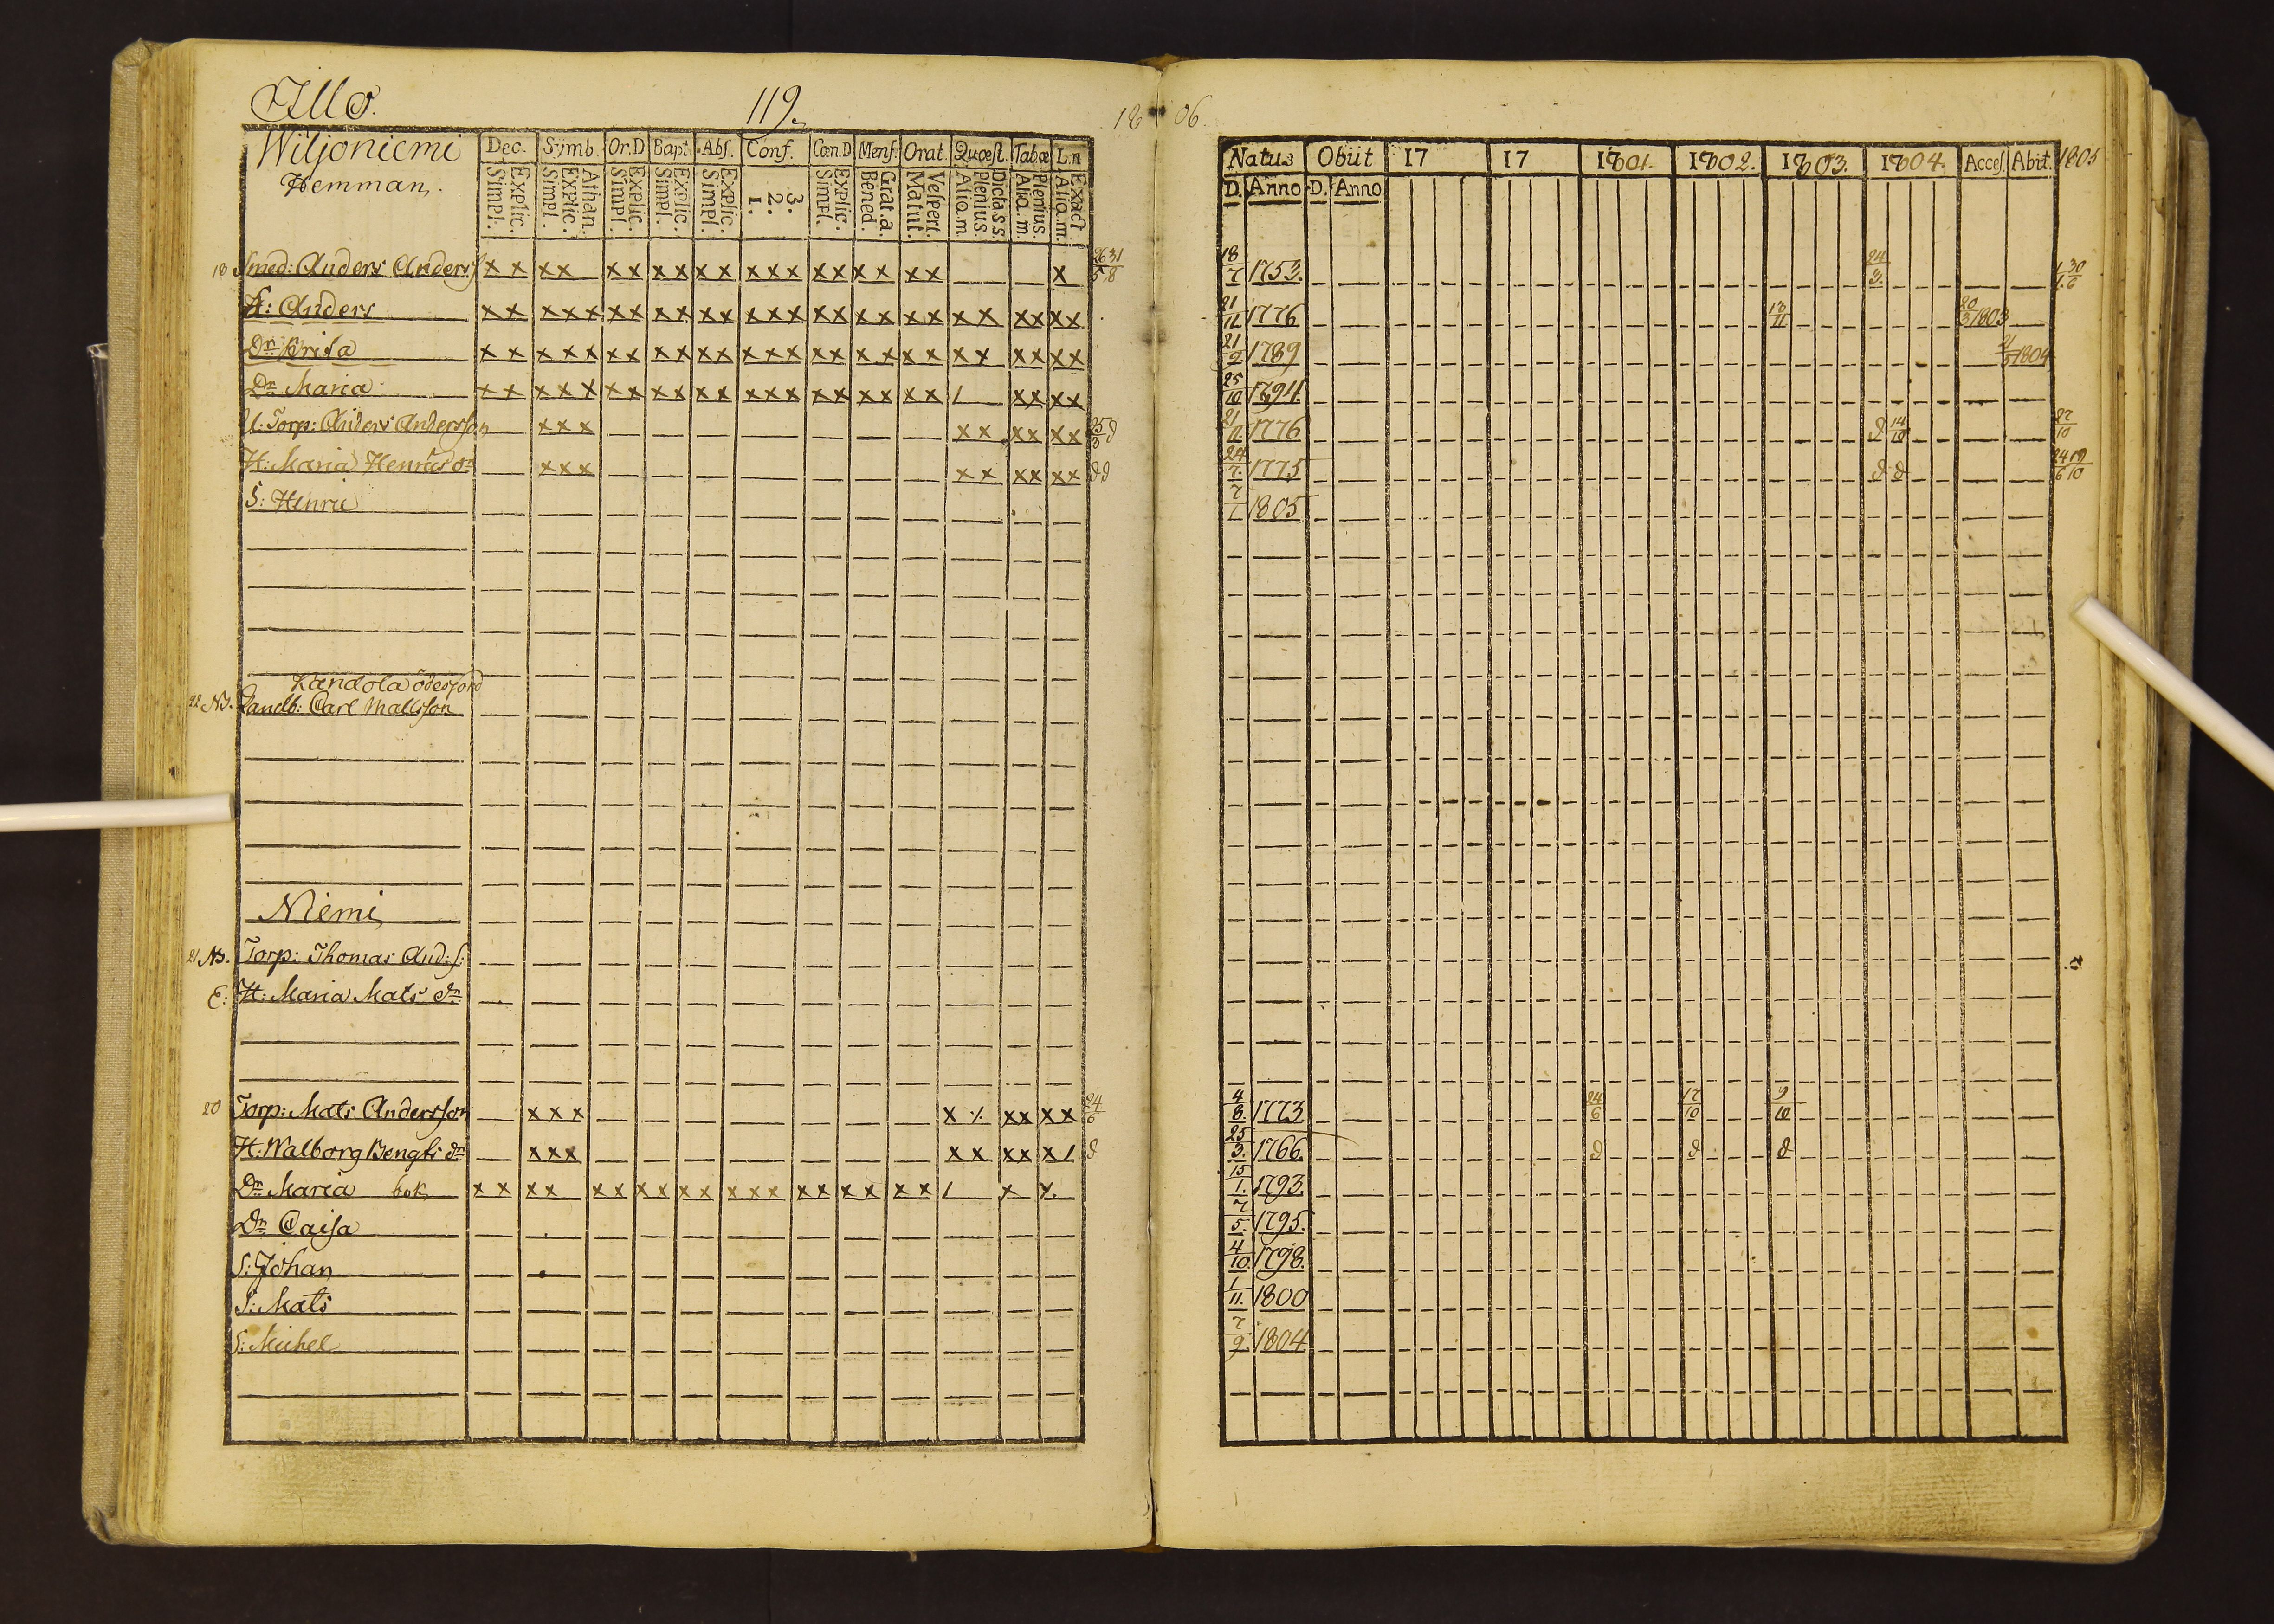 Illo.
119.
Wiljoniemi
Hemman.
Dec. Simb. Or.D Bapt. Abs. Conf. Cœn.D Mens. Orat. Quæst. Tabæ L.n
Explic. Simpl. Athan. Explic. Simpl. Explic. Simpl. Explic. Simpl. Explic. Simpl. 3. 2. 1. Explic. Simpl. Grat.a. Bened. Vespert. Matut. Dicta.s.s. Plenius. Aliq.m Plenius. Aliq.m. Exact Aliq.m.
18 Smed: Anders Anders x x x x x x x x x x x x x x x x x x x x 26 31 5 8
H: Anders x x x x x x x x x x x x x x x x x x x x x x x x x
Dr Brita x x x x x x x x x x x x x x x x x x x x x x x x x x
Dr Maria x x x x x x x x x x x x x x x x x x x x / x x x x
U. Torp: Anders Andersson x x x x x x x x x 25/3 d
H: Maria Henrics dr x x x x x x x x x d d
S: Henric
Kandola ödesjord
22 NB. Landb: Carl Mattsson
Niemi
21 NB. Torp: Thomas And: s:
E. H: Maria Mats dr
20 Torp: Mats Andersson x x x x ⁒ x x x x 24/6
H: Walborg Bengts dr x x x x x x x x / d
Dr Maria bok x x x x x x x x x x x x x x x x x x x x / x x
Dr Caisa
S: Johan
S: Mats
S: Michel
18 06.
Natus Obiit 17 17 1801. 1802. 1803. 1804. Acces Abit. 1805
D. Anno D. Anno
18/7 1753. 24/3. 1 30 1 6
21/11 1776 13/11 20/3 1803
21/2 1789 21/5 1804
25/10 1794
21/11 1776 d 14/10 27/10
24/7. 1775 d d 24 19 6 10
7/7 1805
4/8. 1773 24/6 17/10 9/10
25/3. 1766. d d d
15/1. 1793.
7/5. 1795.
4/10. 1798.
1/11. 1800
7/9 1804